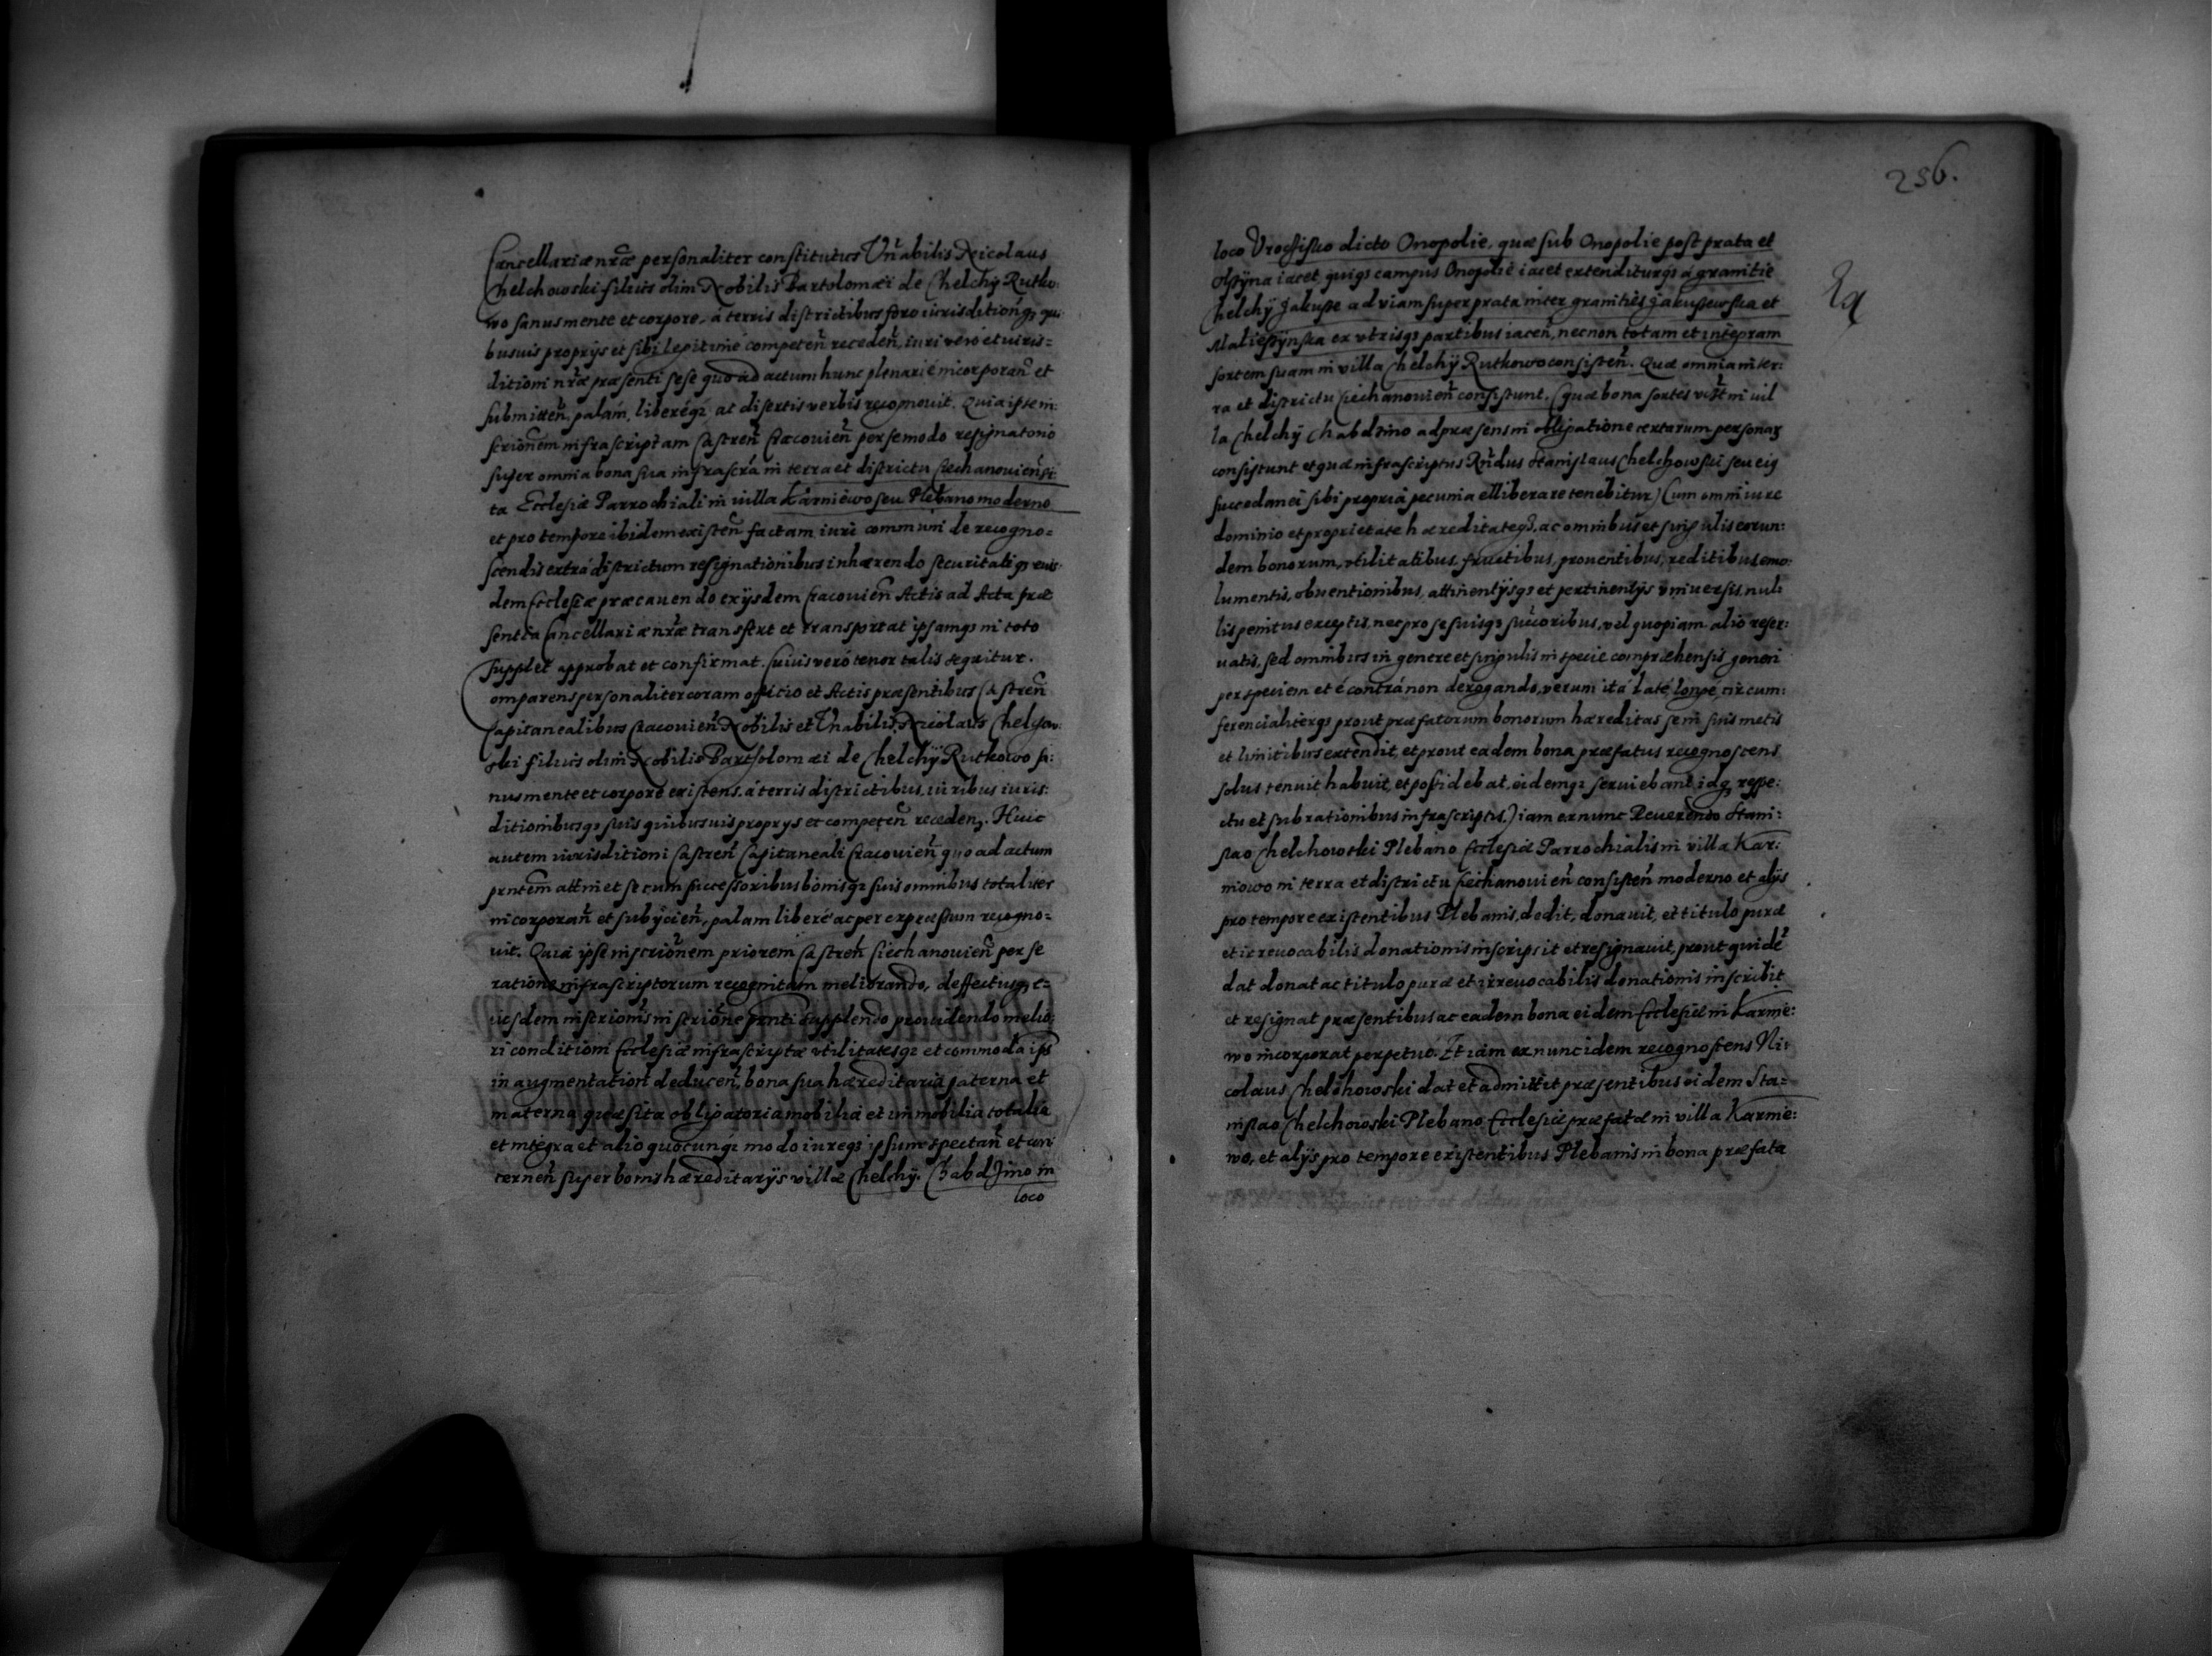 Cancellariæ nr̃æ personaliter constitutus Vñabilis Nicolaus
Chelchowski filius olim Nobilis Bartolomæi de Chelchÿ Rutko:
wo sanus mente et corpore, á terris districtibus foro iurisditionq3 qui
busuis proprÿs et sibi legitimé competeñ recedeñ, iuri veró et iuris=
ditioni nr̃æ præsenti sese quo ad actum hunc plenarié incorporañ et
submitteñ, palám, liberéq3 ac disertis verbis recognouit. Quia ipse in:
scriõnem infrascriptam Castreñ Cracouieñ per se modo resignatorio
super omnia bona sua infrascrá in terra et districtu Ciechanouieñ si:
ta Ecclesiæ Parrochiali in villa Karniewo seu Plebano moderno
et pro tempore ibidem existeñ factam iuri communi de recogno=
scendis extrá districtum resignationibus inhærendo securitatiq3 eius
dem Ecclesiæ præcauendo ex ÿsdem Cracouieñ Actis ad Acta præ
sentia Cancellariæ nr̃æ transfert et transportat ipsamq3 in toto
supplet approbat et confirmat. Cuius veró tenor talis sequitur.
Comparens personaliter coram officio et Actis præsentibus Castreñ
Capitanealibus Cracouieñ Nobilis et Vñabilis Nicolaus Chelchow:
ski filius olim Nobilis Bartholomæi de Chelchÿ Rutkowo sa:
nus mente et corpore existens, á terris districtibus, iuribus iuris:
ditionibusq3 suis quibusuis proprys et competeñ recedeñ. Huic
autem iurisditioni Castreñ Capitaneali Cracouieñ quo ad actum
pñtem attin et se cum successoribus bonisq3 suis omnibus totaliter
incorporañ et subÿcieñ, palam liberé ac per expressum recogno=
uit. Quia ipse inscriõnem priorem Castreñ Ciechanouieñ per se
ratione infrascriptorum recognitam meliorando, deffectusq3 e=
iusdem inscriõnis inscriõne pñti supplendo prouidendo melio:
ri conditioni Ecclesiæ infrascriptæ vtilitatesq3 et commoda ips
in augmentationẽ deduceñ, bona sua hæreditaria paterna et
materna quæsita obligatoria mobilia et immobilia totalia
et integra et alio quocunq3 modo iureq3 ipsum spectañ et con
cerneñ super bonis hæreditarÿs villæ Chelchÿ. Chabdzino in
loco
236.
loco Vroczisko dicto Onopolie, quæ sub Onopolie post prata et
Olszÿna iacet quiq3 campus Onopolie iacet extenditurq3 á granitie
Chelchÿ Jakusse ad viam super prata inter granities Jakussewska et
Maliessÿnska ex vtrisq3 partibus iaceñ, necnon totam et integram
sortem suam in villa Chelchÿ Rutkowo consisteñ. Quæ omnia in ter:
ra et districtu Ciechanouieñ consistunt. (quæ bona sortes vi3t in vil
la Chelchÿ Chabdzino ad præsens in obligatione certarum personar̃
consistunt et quæ infrascriptus Rñdus Stanislaus Chelchowski seu eiq
succedanei sibi propria pecunia elliberare tenebitur) Cum omni iure
dominio et proprietate hæreditateq3, ac omnibus et singulis eorun:
dem bonorum, vtilitatibus, fructibus, prouentibus, reditibus emo:
lumentis, obuentionibus, attinentÿsq3 et pertinentÿs vniuersis, nul:
lis penitus exceptis, nec pro se suisq3 succõribus, vel quopiam alio reser:
uatis, sed omnibus in genere et singulis in specie compræhensis generi
per speciem et é contrá non derogando, verum itá laté, longé, circum:
ferencialiterq3 prout præfatorum bonorum hæreditas se in suis metis
et limitibus extendit, et prout eadem bona præfatus recognoscens
solus tenuit habuit, et possidebat, eidemq3 seruiebant idq3 respe:
ctu et sub rationibus infrascriptis.) iam ex nunc Reuerendo Stani:
slao Chelchowski Plebano Ecclesiæ Parrochialis in villa Kar:
niowo in terra et districtu Ciechanouieñ consisteñ moderno et alÿs
pro tempore existentibus Plebanis, dedit, donauit, et titulo puræ
et irreuocabilis donationis inscripsit et resignauit, prout quidẽ
dat donat ac titulo puræ et irreuocabilis donationis inscribit
et resignat præsentibus ac eadem bona eidem Ecclesiæ in Karnie:
wo incorporat perpetuó. Et iám ex nunc idem recognoscens Ni:
colaus Chelchowski dat et admittit præsentibus eidem Sta=
nislao Chelchowski Plebano Ecclesiæ præfatæ in villa Karnie:
wo, et alÿs pro tempore existentibus Plebanis in bona præfata